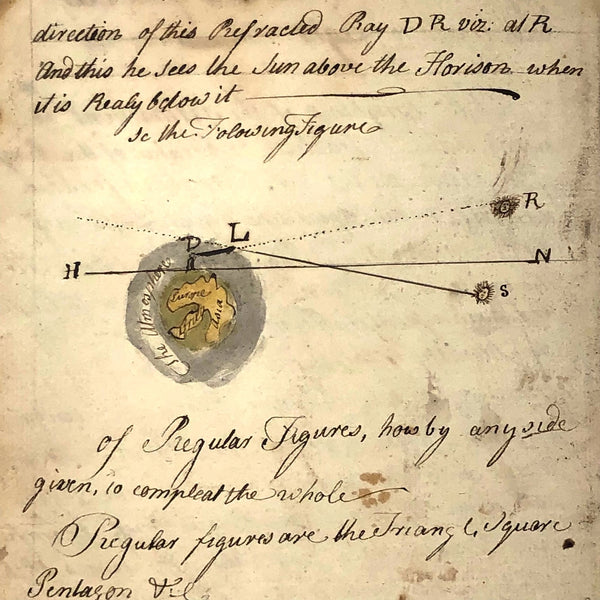 direction of this Refracted Ray D R viz: at R
And this he sees the Sun above the Horison when
it is Realy below it
se the Folowing Figure
R
D L
H N
S
The Atmosphere
Europe
Asia
of Regular Figures, how by any side
given, to compleat the whole
Regular figures are the Triangle, Square
Pentagon &c